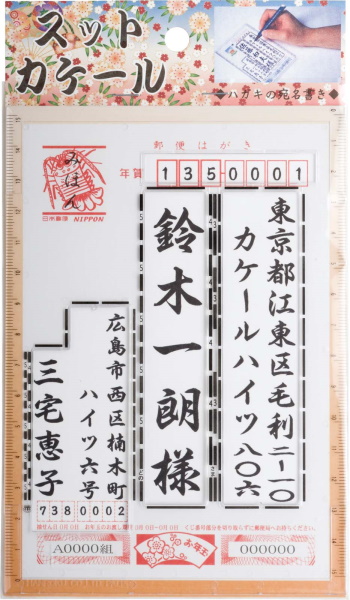 スット
カケール
◆ハガキの宛名書き◆
郵便はがき
年賀
1350001
みほん
日本郵便 NIPPON
東京都江東区毛利二ー一〇
カケールハイツ八〇六
鈴木一朗様
広島市西区楠木町
ハイツ六号
三宅恵子
7380002
A0000組
お年玉
000000